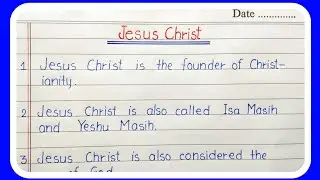 Date ..............
Jesus Christ
1. Jesus Christ is the founder of Christ-
ianity.
2. Jesus Christ is also called Isa Masih
and Yeshu Masih.
3. Jesus Christ is also considered the
of God